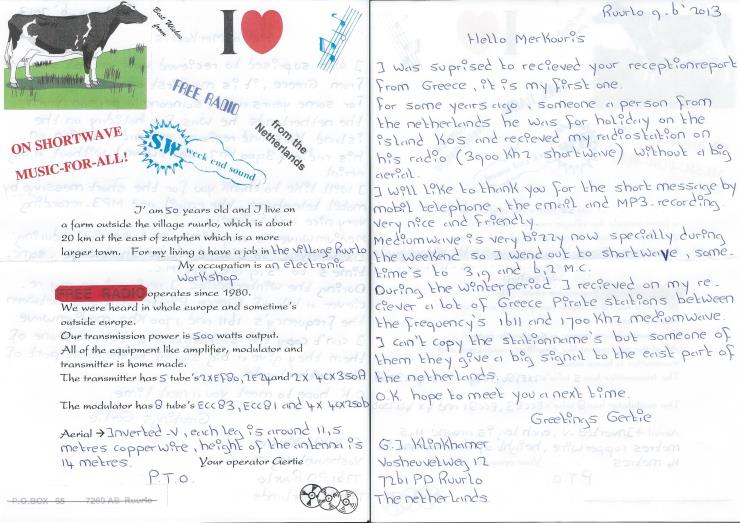 Best Wishes
from
I
FREE RADIO
from the
Netherlands
ON SHORTWAVE
MUSIC-FOR-ALL!
S.W.
week end sound
I'am 50 years old and I live on
a farm outside the village ruurlo, which is about
20 km at the east of zutphen which is a more
larger town. For my living a have a job in the village Ruurlo
My occupation is an electronic
workshop.
FREE RADIO operates since 1980.
We were heard in whole europe and sometime's
outside europe.
Our transmission power is 500 watts output.
All of the equipment like amplifier, modulator and
transmitter is home made.
The transmitter has 5 tube's 2XEF80, 2E24 and 2X 4CX350A
The modulator has 8 tube's ECC83, ECC81 and 4X 4CX250b
Aerial → Inverted-V, each leg is around 11,5
metres copperwire, height of the antenna is
14 metres. Your operator Gertie
P.T.O.
P.O.BOX 55 7260 AB Ruurlo
Ruurlo 9-6' 2013
Hello Merkouris
I was suprised to recieved your receptionreport
from Greece, it is my first one.
For some years ago, someone a person from
the netherlands he was for holiday on the
island Kos and recieved my radiostation on
his radio (3900 Khz shortwave) without a big
aerial.
I will like to thank you for the short message by
mobil telephone, the email and MP3-recording.
Very nice and friendly.
Mediumwave is very bizzy now specially during
the weekend so I wend out to shortwave, some-
time's to 3,9 and 6,2 M.C.
During the winterperiod I recieved on my re-
ciever a lot of Greece Pirate stations between
the frequency's 1611 and 1700 Khz mediumwave.
I can't copy the stationname's but someone of
them they give a big signal to the east part of
the netherlands.
O.K. hope to meet you a next time.
Greetings Gertie
G.J Klinkhamer
Vosheuvelweg 12
7261 PD Ruurlo
The netherlands.